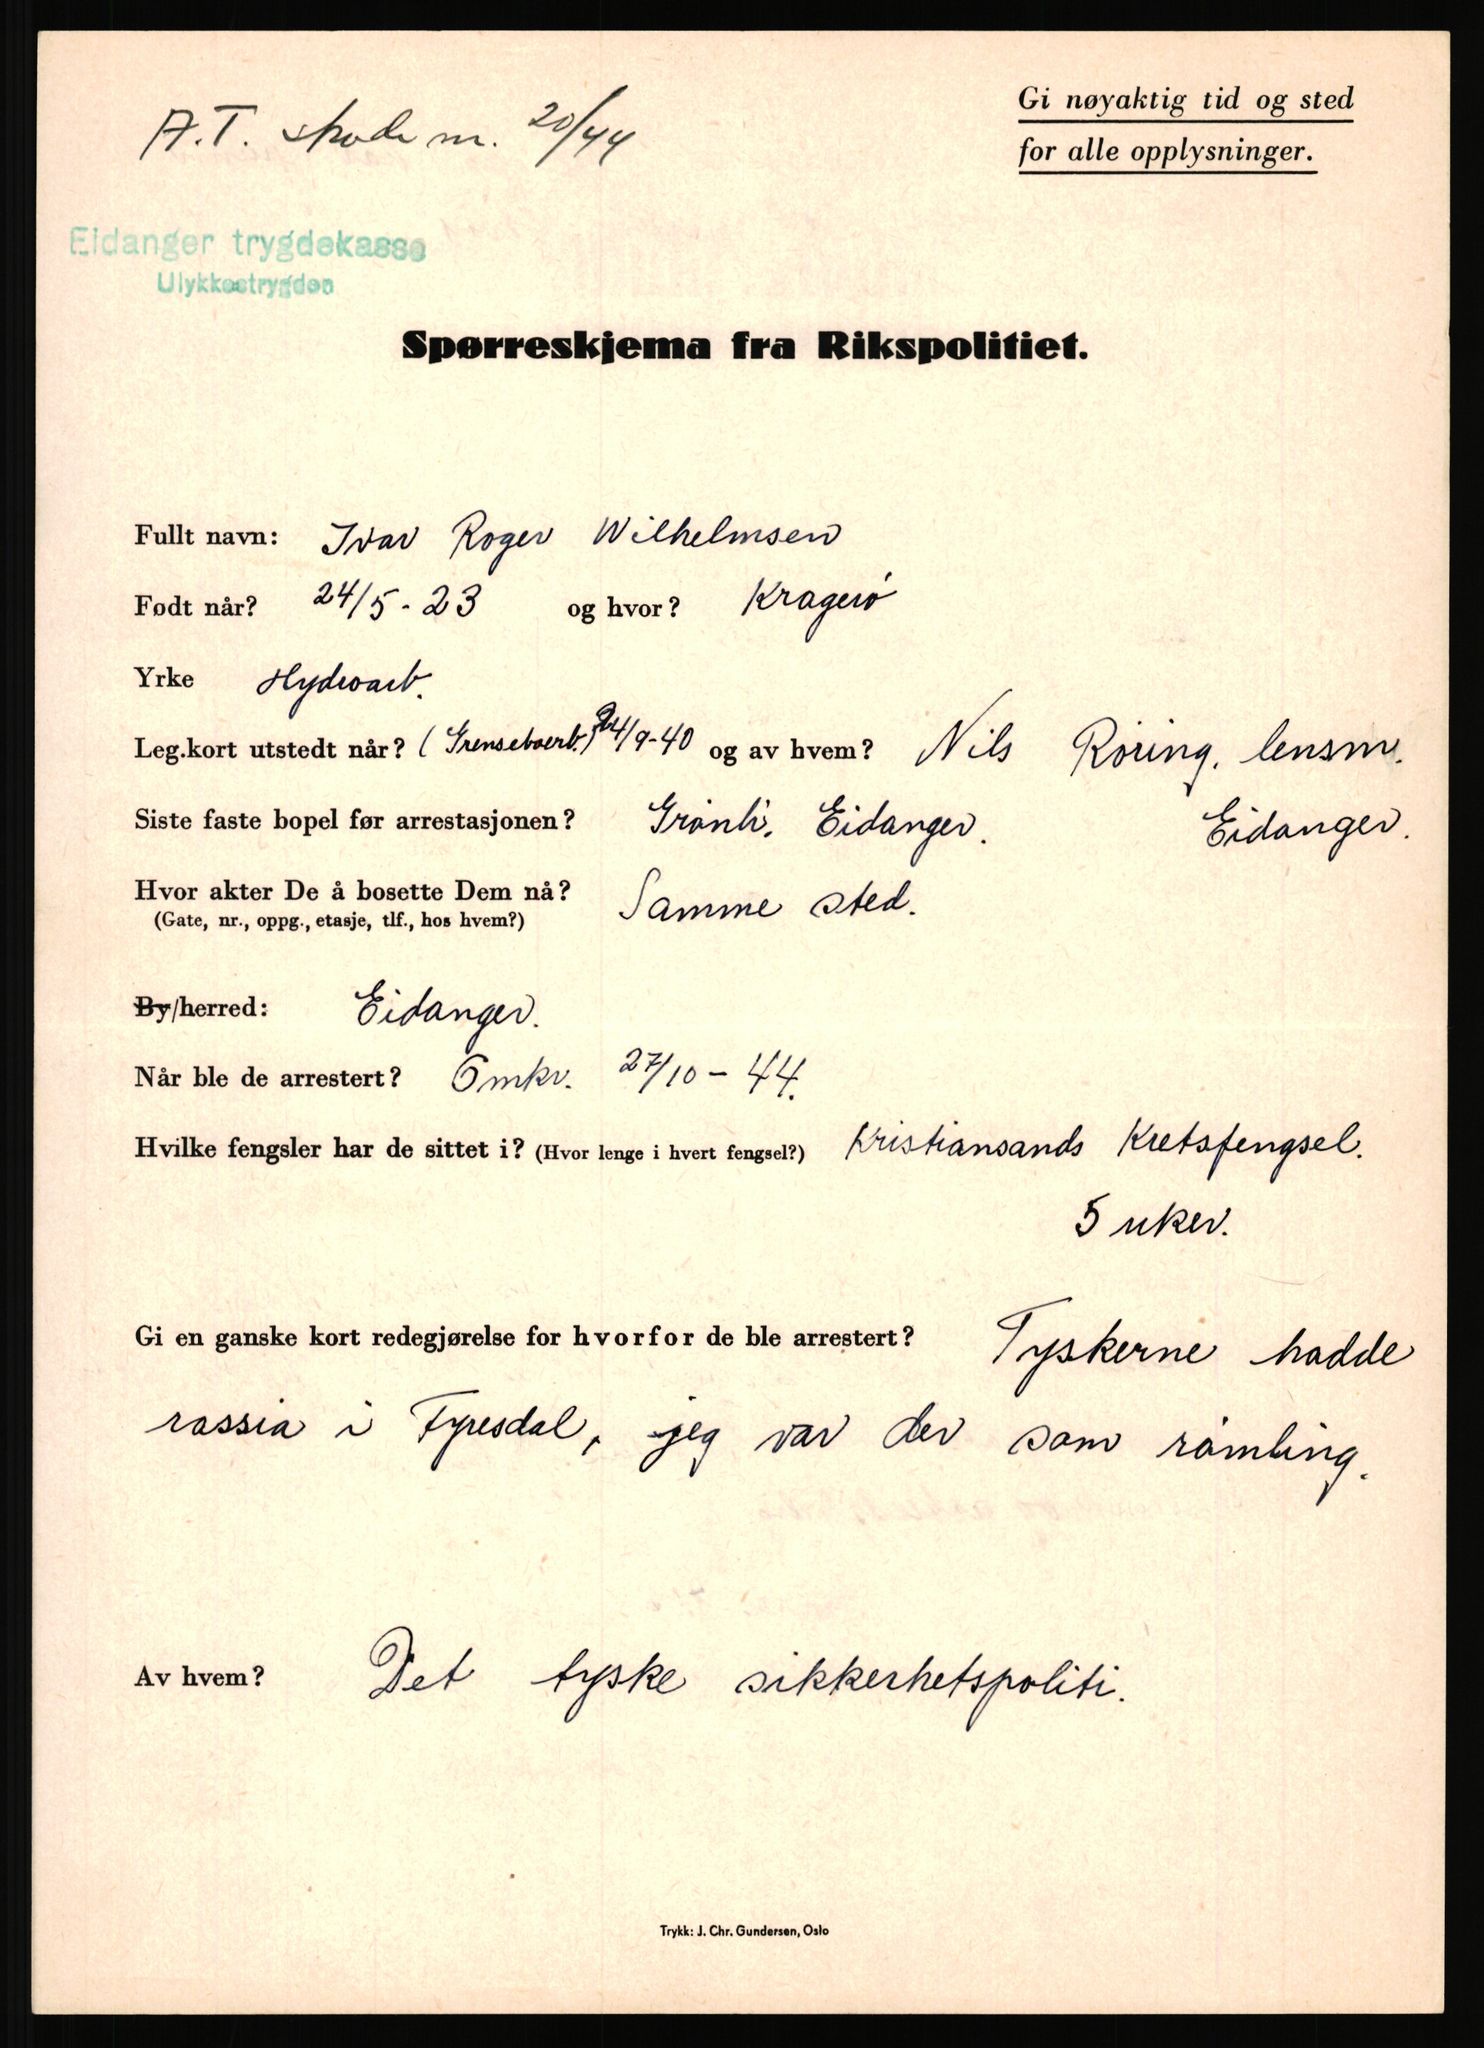 Gi nøyaktig tid og sted
for alle opplysninger.
A.T. skade nr. 20/44
Eidanger trygdekasse
Ulykkestrygden
Spørreskjema fra Rikspolitiet.
Fullt navn: Ivar Roger Wilhelmsen
Født når? 24/5-23 og hvor? Kragerø
Yrke Hydroarb.
Leg.kort utstedt når? (Grenseboerb.) 24/9-40 og av hvem? Nils Röring, lensm.
Siste faste bopel før arrestasjonen? Grönli, Eidanger. Eidanger.
Hvor akter De å bosette Dem nå? Samme sted.
(Gate, nr., oppg., etasje, tlf., hos hvem?)
By/herred: Eidanger.
Når ble de arrestert? Omkr. 27/10-44.
Hvilke fengsler har de sittet i? (Hvor lenge i hvert fengsel?) Kristiansands Kretsfengsel.
5 uker.
Gi en ganske kort redegjørelse for hvorfor de ble arrestert? Tyskerne hadde
rassia i Fyresdal, jeg var der som römling.
Av hvem? Det tyske sikkerhetspoliti.
Trykk: J. Chr. Gundersen, Oslo